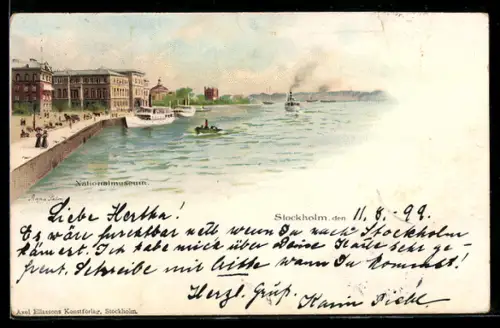 Nationalmuseum.
Stockholm, den 11.8.99.
Liebe Hertha!
Es wäre furchtbar nett wenn Du nach Stockholm
kämest. Ich habe mich über Deine Karte sehr ge-
freut. Schreibe mir bitte wann Du kommst!
Herzl. Gruß.
Karin
Axel Eliassons Konstförlag, Stockholm.